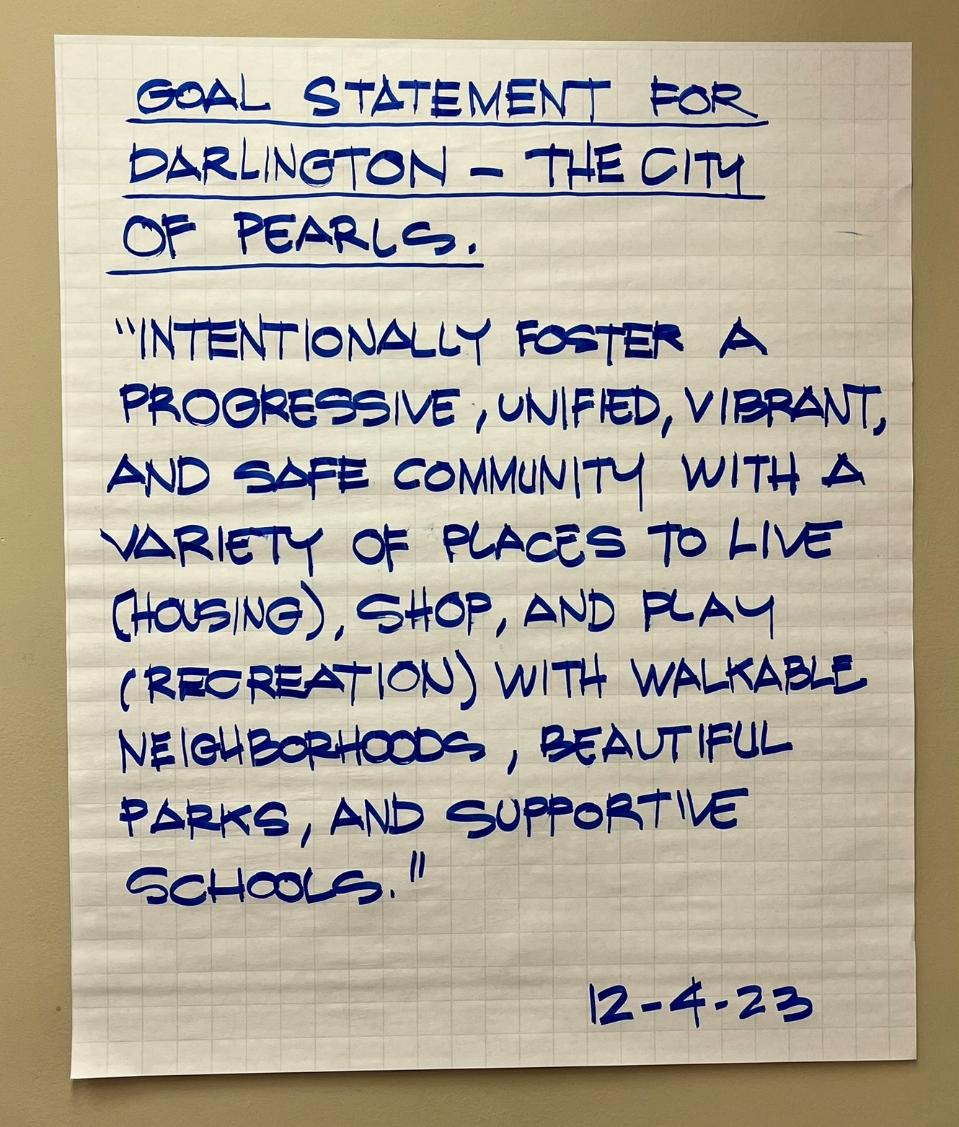 GOAL STATEMENT FOR
DARLINGTON - THE CITY
OF PEARLS.
"INTENTIONALLY FOSTER A
PROGRESSIVE, UNIFIED, VIBRANT,
AND SAFE COMMUNITY WITH A
VARIETY OF PLACES TO LIVE
(HOUSING), SHOP, AND PLAY
(RECREATION) WITH WALKABLE
NEIGHBORHOODS, BEAUTIFUL
PARKS, AND SUPPORTIVE
SCHOOLS."
12-4-23